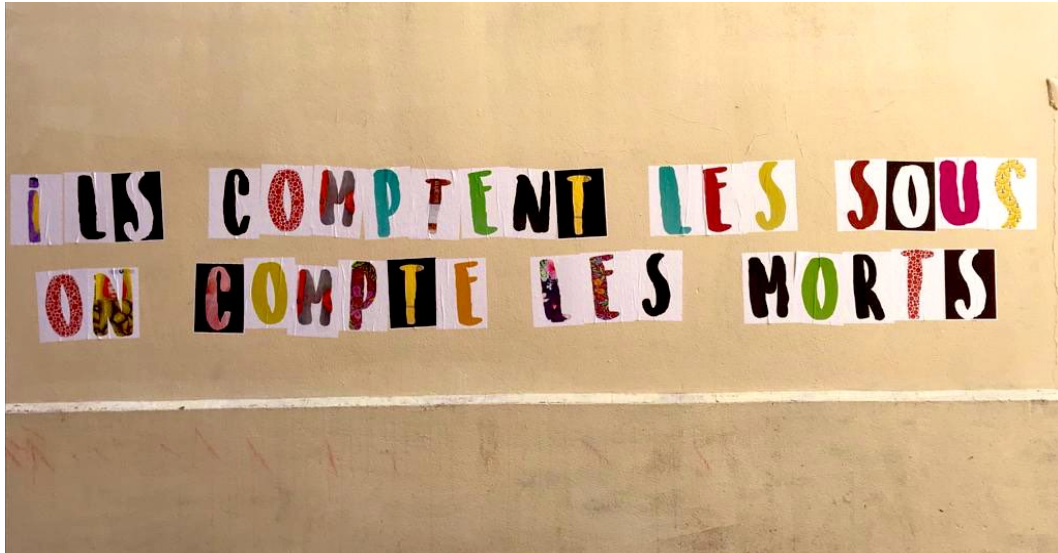 iLS COMPTENT LES SOUS
ON COMPTE LES MORTS